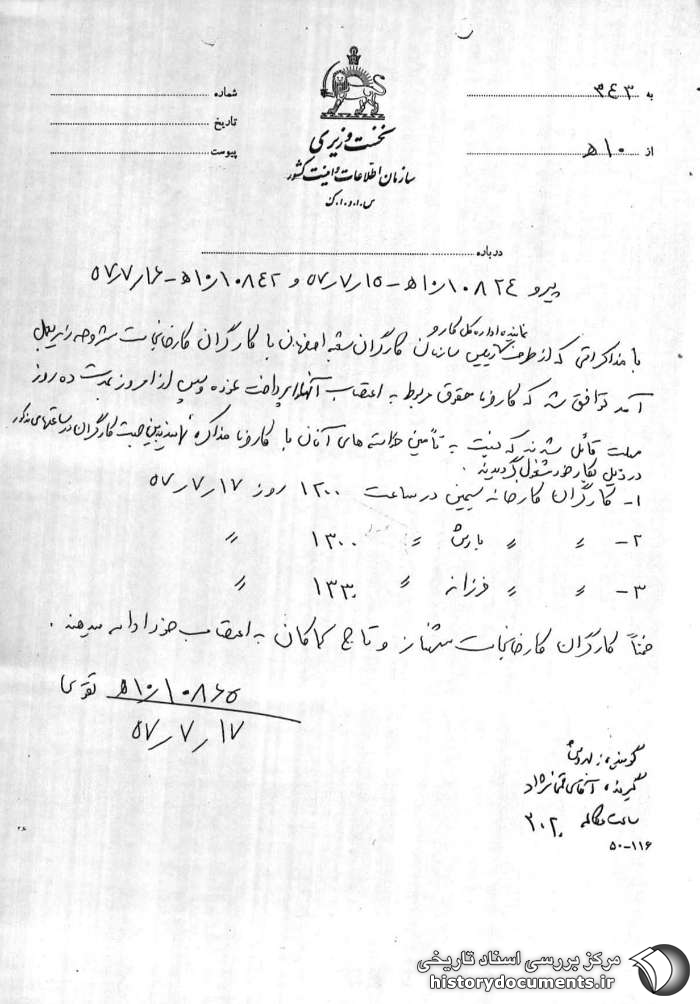 به ۳۴۳
از ۱۰ه‍
شماره
تاریخ
پیوست
نخست وزیری
سازمان اطلاعات و امنیت کشور
س.ا.و.ا.ک
درباره
پیرو ۱۰۸۲۴/۱۰ه‍ - ۵۷/۷/۱۵ و ۱۰۸۴۲/۱۰ه‍ - ۵۷/۷/۱۶
با مذاکراتی که از طرف نماینده اداره کل کار و رئیس سازمان کارگران شعبه اصفهان با کارگران کارخانجات مشروحه زیر بعمل
آمد توافق شد که کارفرما حقوق مربوط به اعتصاب آنها را پرداخت نموده و سپس از امروز بمدت ده روز
مهلت قائل شدند که نسبت به تأمین خواسته های آنان با کارفرما مذاکره نمایند بدین جهت کارگران در ساعتهای مذکور
در ذیل بکار خود مشغول گردیدند.
۱- کارگران کارخانه سیمین در ساعت ۱۲۰۰ روز ۵۷/۷/۱۷
۲- " " بارش " ۱۳۰۰ "
۳- " " فرزانه " ۱۳۳۰ "
ضمناً کارگران کارخانجات شهناز و تاج کماکان به اعتصاب خود ادامه میدهند.
۱۰۸۶۵/۱۰ه‍ تقوی
۵۷/۷/۱۷
گوینده:
گیرنده: آقای
ساعت مکالمه ۲۰۳۰
۵۰-۱۱۶
مرکز بررسی اسناد تاریخی
historydocuments.ir